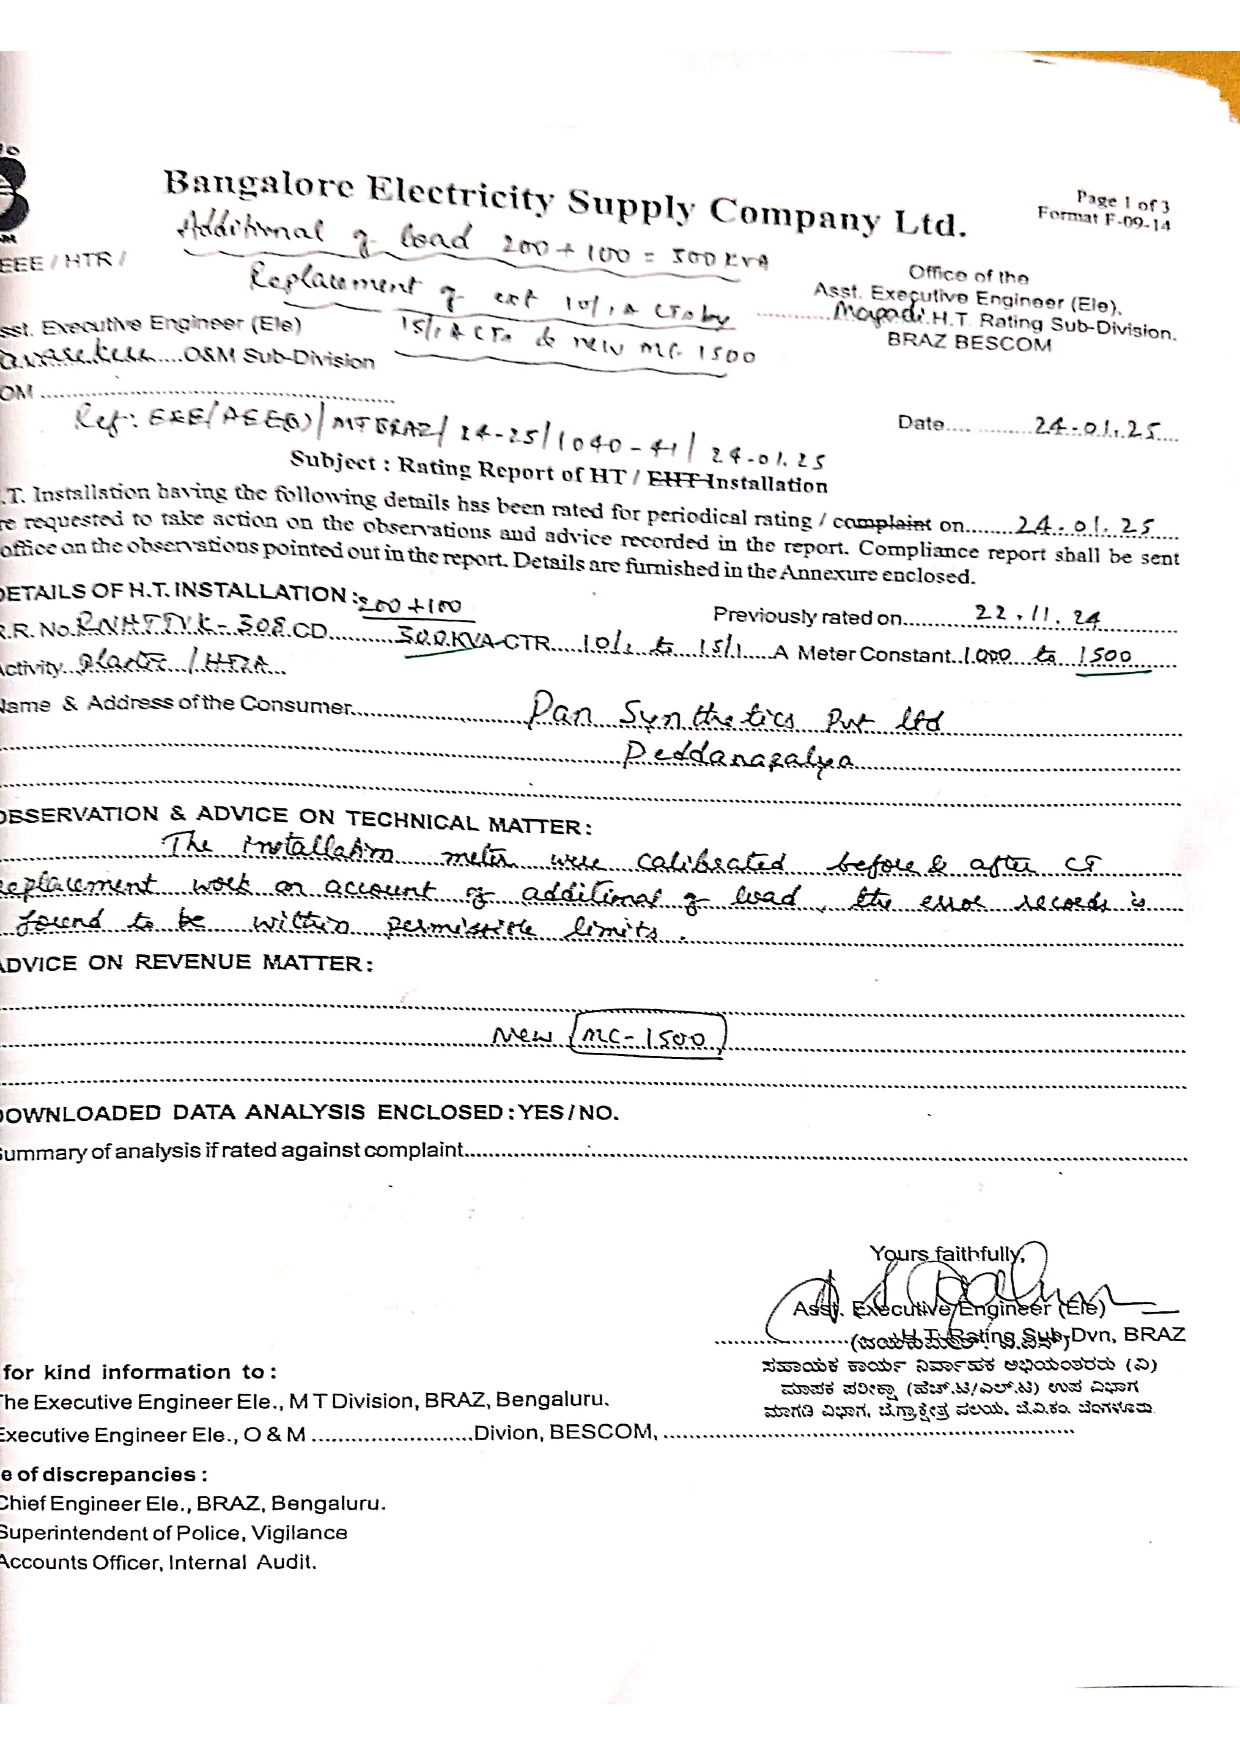 Bangalore Electricity Supply Company Ltd.
Page 1 of 3
Format F-09-14
Additional of load 200 + 100 = 300 KVA
EEE / HTR /
Replacement of ext 10/1A CTs by
15/1 A CTs & new MC 1500
Office of the
Asst. Executive Engineer (Ele).
Magadi H.T. Rating Sub-Division.
BRAZ BESCOM
sst. Executive Engineer (Ele)
O&M Sub-Division
OM
Ref: EEE/AEE(E)/MTBRAZ/24-25/1040-41/24-01.25
Date 24-01.25
Subject : Rating Report of HT / EHT Installation
.T. Installation having the following details has been rated for periodical rating / complaint on 24-01.25
re requested to take action on the observations and advice recorded in the report. Compliance report shall be sent
office on the observations pointed out in the report. Details are furnished in the Annexure enclosed.
DETAILS OF H.T. INSTALLATION :
200 + 100
Previously rated on 22.11.24
R.R. No. RNHTTVK-308 CD 300 KVA CTR 10/1 to 15/1 A Meter Constant 1000 to 1500
Activity Plastic / HT2A
Name & Address of the Consumer Pan Synthetics Pvt Ltd
Peddanapalya
OBSERVATION & ADVICE ON TECHNICAL MATTER :
The installation meter were calibrated before & after CT
replacement work on account of additional of load, the error records is
found to be within permissible limits.
ADVICE ON REVENUE MATTER :
New MC-1500
DOWNLOADED DATA ANALYSIS ENCLOSED : YES / NO.
Summary of analysis if rated against complaint
Yours faithfully,
Asst. Executive Engineer (Ele)
H.T. Rating Sub-Dvn, BRAZ
ಸಹಾಯಕ ಕಾರ್ಯ ನಿರ್ವಾಹಕ ಅಭಿಯಂತರರು (ವಿ)
ಮಾಪಕ ಪರೀಕ್ಷಾ (ಹೆಚ್.ಟಿ/ಎಲ್.ಟಿ) ಉಪ ವಿಭಾಗ
ಮಾಗಡಿ ವಿಭಾಗ, ಬೆ.ಗ್ರಾ.ಕ್ಷೇತ್ರ ವಲಯ, ಬೆ.ವಿ.ಕಂ. ಬೆಂಗಳೂರು.
for kind information to :
The Executive Engineer Ele., M T Division, BRAZ, Bengaluru.
Executive Engineer Ele., O & M Divion, BESCOM,
e of discrepancies :
Chief Engineer Ele., BRAZ, Bengaluru.
Superintendent of Police, Vigilance
Accounts Officer, Internal Audit.